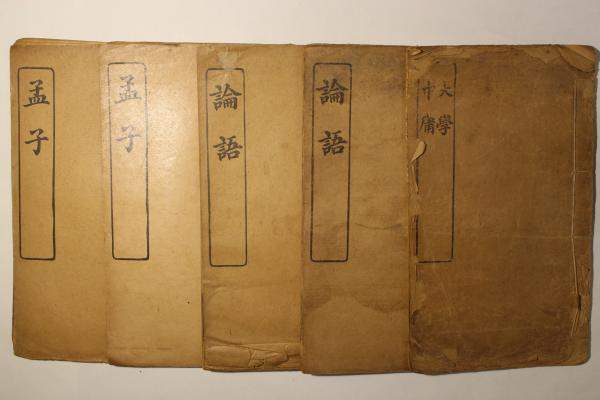 大學
中庸
論語
論語
孟子
孟子